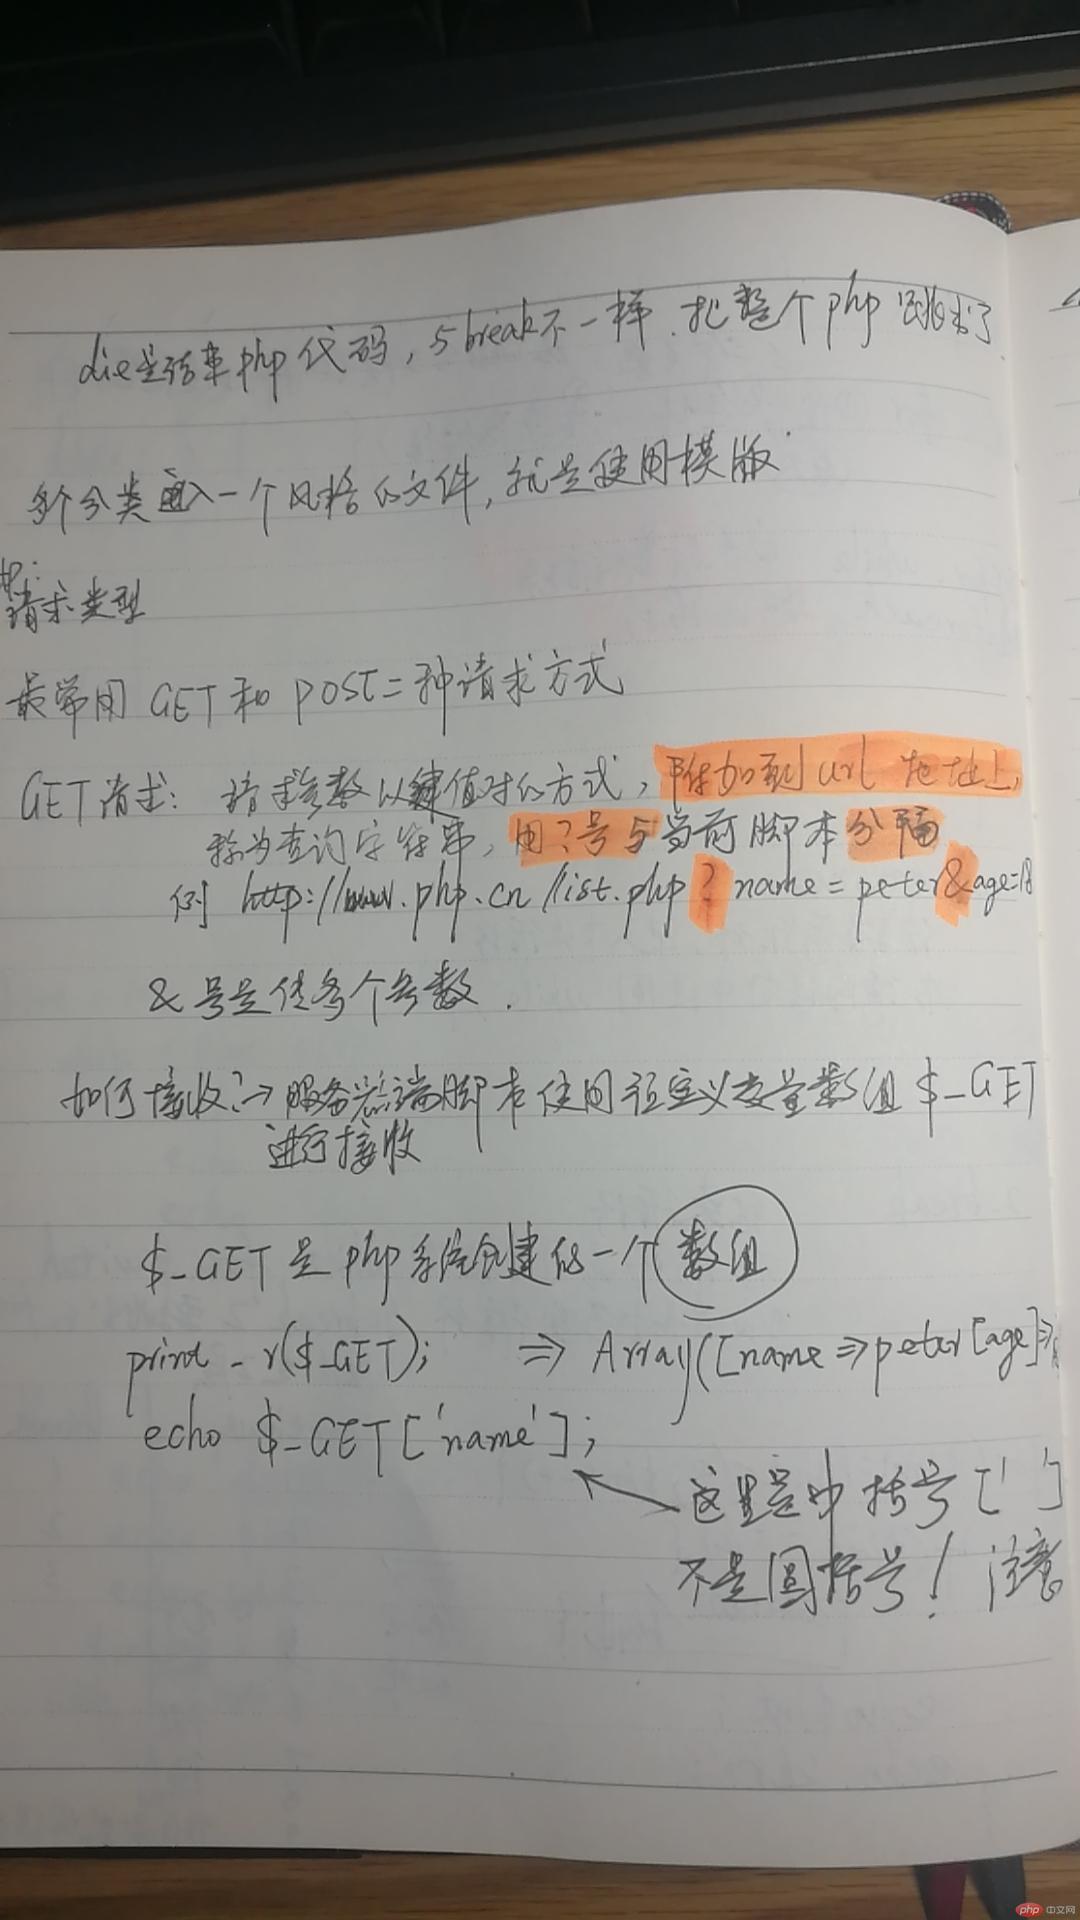 die是结束php代码，与break不一样．把整个php跳出了
多个分类 一个风格的文件，就是使用模版
请求类型
最常用 GET和 POST二种请求方式
GET请求：请求参数以键值对的方式，附加到url地址上，
称为查询字符串，用？号与当前脚本分隔
例 http://www.php.cn/list.php?name=peter&age=18
&号是传多个参数．
如何接收？→服务器端脚本使用预定义变量数组 $_GET
进行接收
$_GET 是 php系统创建的一个数组
print_r($_GET); ⇒ Array([name⇒peter[age]⇒
echo $_GET['name'];
这里是中括号[' ']
不是圆括号！注意
php 中文网